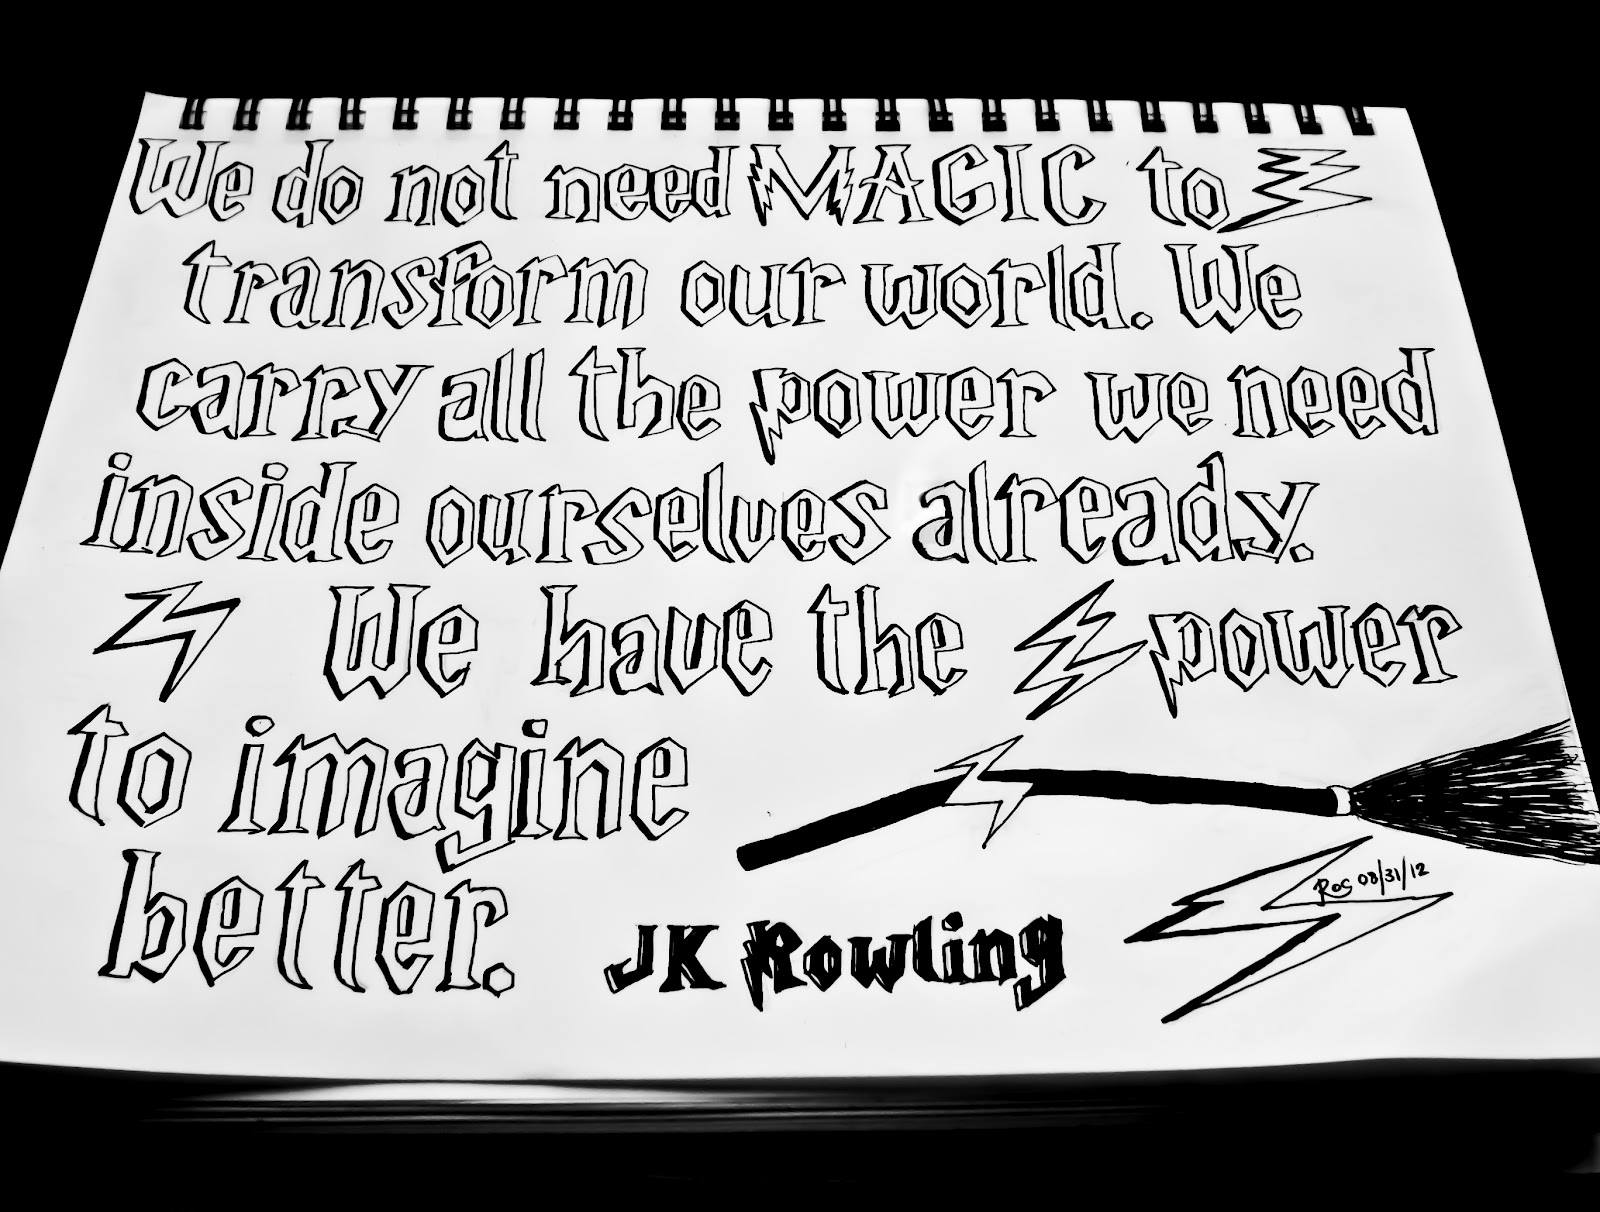 We do not need MAGIC to
transform our world. We
carry all the power we need
inside ourselves already.
We have the power
to imagine
better.
JK Rowling
Ros 08/31/12